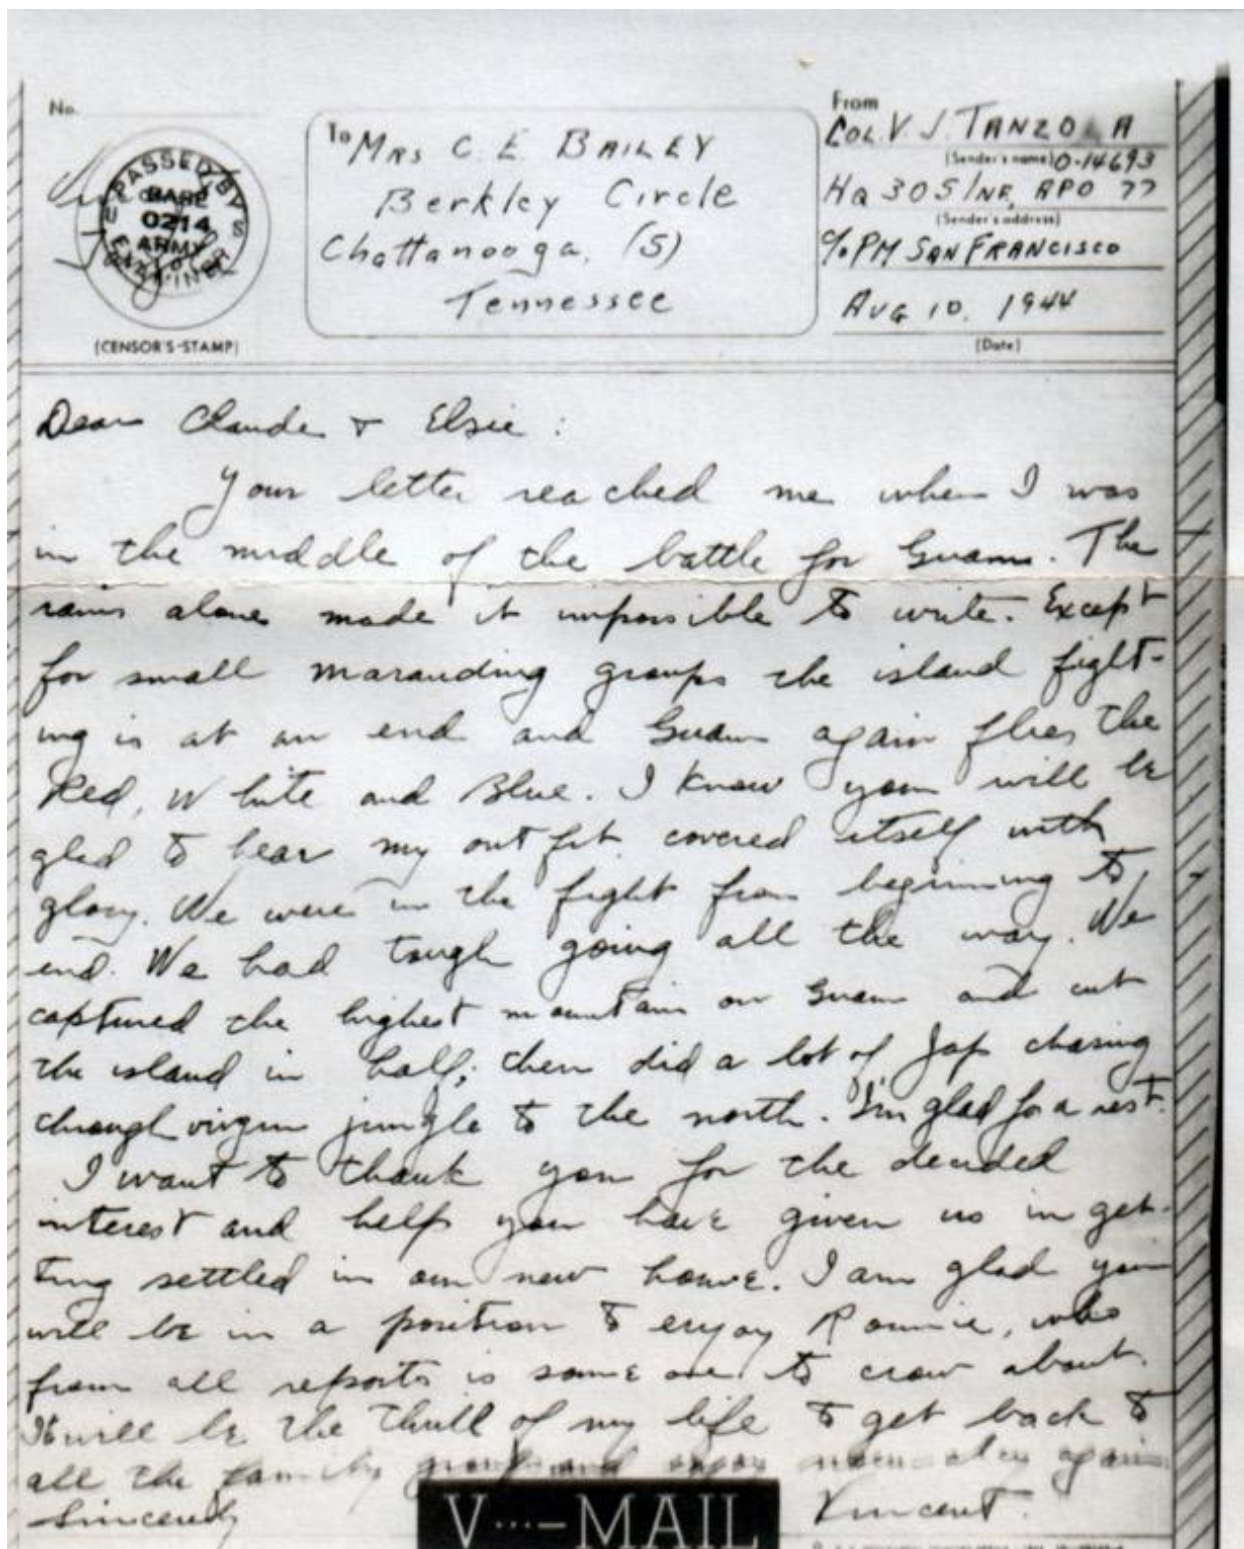 No.
PASSED BY
BASE
0214
ARMY
EXAMINER
(CENSOR'S STAMP)
To Mrs C. E. BAILEY
Berkley Circle
Chattanooga, (5)
Tennessee
From
COL. V. J. TANZOLA
(Sender's name) O-14693
HQ 305 INF, APO 77
(Sender's address)
c/o PM SAN FRANCISCO
AUG 10, 1944
(Date)
Dear Claude & Elsie:
Your letter reached me when I was
in the middle of the battle for Guam. The
rains alone made it impossible to write. Except
for small marauding groups the island fight-
ing is at an end and Guam again flies the
Red, White and Blue. I know you will be
glad to hear my outfit covered itself with
glory. We were in the fight from beginning to
end. We had tough going all the way. We
captured the highest mountain on Guam and cut
the island in half; then did a lot of Jap chasing
through virgin jungle to the north. I'm glad for a rest.
I want to thank you for the decided
interest and help you have given us in get-
ting settled in our new home. I am glad you
will be in a position to enjoy Ronnie, who
from all reports is some one to crow about.
It will be the thrill of my life to get back to
all the family group and enjoy normalcy again
Sincerely
Vincent.
V···—MAIL